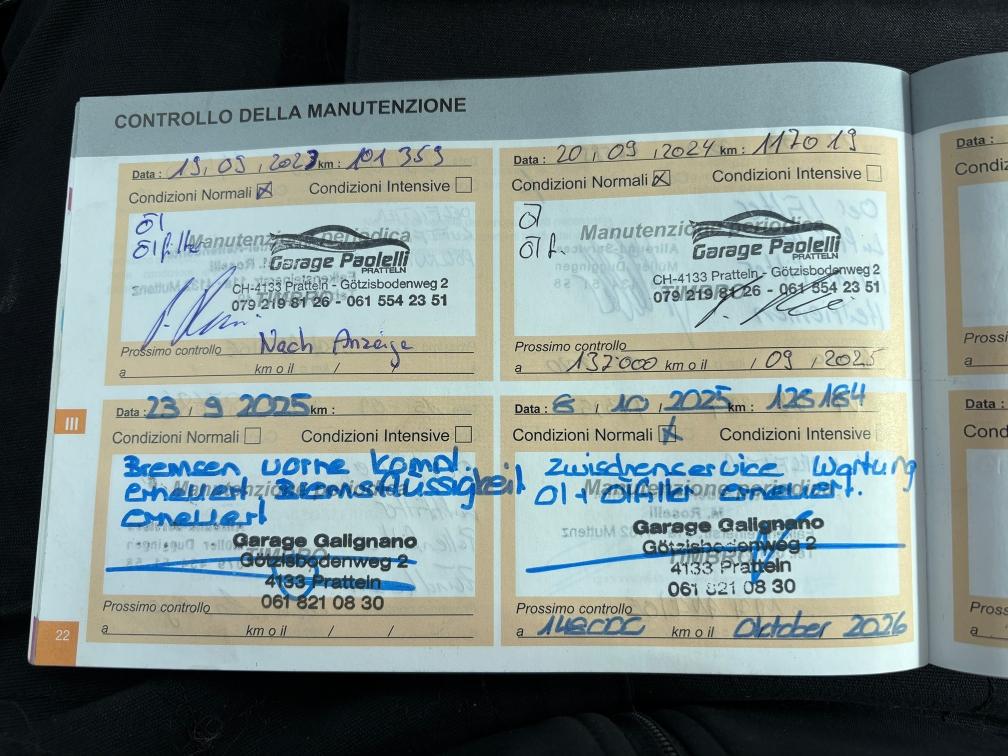 CONTROLLO DELLA MANUTENZIONE
Data : 19, 09, 2023 km : 101 359
Condizioni Normali ☒ Condizioni Intensive ☐
Öl
Ölfilter
Manutenzione periodica
Garage Paolelli
PRATTELN
CH-4133 Pratteln - Götzisbodenweg 2
TIMBRO
079 219 81 26 - 061 554 23 51
Prossimo controllo Nach Anzeige
a km o il / /
Data : 20, 09, 2024 km : 117019
Condizioni Normali ☒ Condizioni Intensive ☐
Öl
Öl f.
Manutenzione periodica
Garage Paolelli
PRATTELN
CH-4133 Pratteln - Götzisbodenweg 2
079 219 81 26 - 061 554 23 51
Prossimo controllo
a 137000 km o il / 09 / 2025
III
Data : 23 / 9 2025 km :
Condizioni Normali ☐ Condizioni Intensive ☐
Bremsen vorne kompl.
erneuert Bremsflüssigkeit
erneuert
Manutenzione periodica
Garage Galignano
Götzisbodenweg 2
TIMBRO
4133 Pratteln
061 821 08 30
Prossimo controllo
a km o il / /
Data : 8 / 10, 2025 km : 128184
Condizioni Normali ☒ Condizioni Intensive
Zwischenservice Wartung
Öl + Ölfilter erneuert.
Manutenzione periodica
Garage Galignano
Götzisbodenweg 2
4133 Pratteln
061 821 08 30
Prossimo controllo
a 148000 km o il Oktober 2026
22
Data :
Condiz
Prossi
a
Data :
Cond
Pros
a